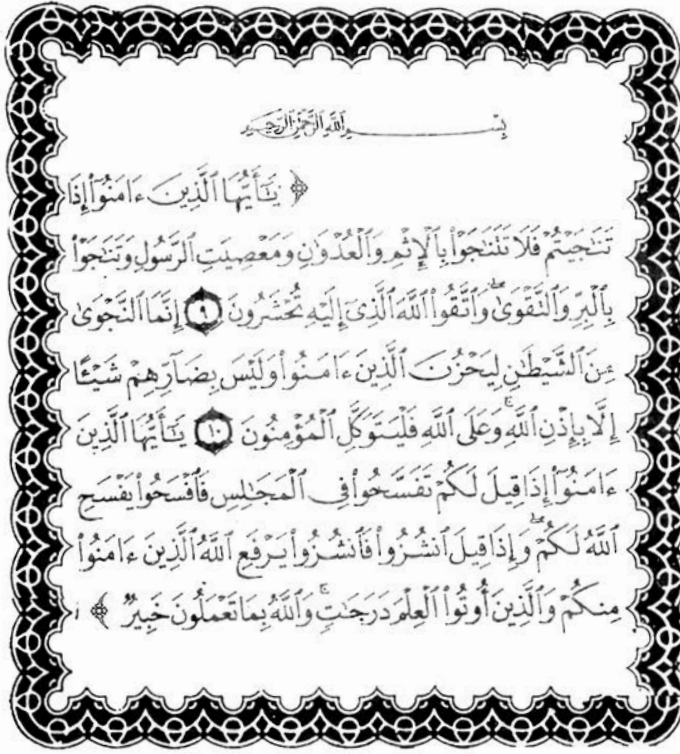 بِسْمِ اللَّهِ الرَّحْمَٰنِ الرَّحِيمِ
﴿ يَٰٓأَيُّهَا ٱلَّذِينَ ءَامَنُوٓا۟ إِذَا
تَنَٰجَيْتُمْ فَلَا تَتَنَٰجَوْا۟ بِٱلْإِثْمِ وَٱلْعُدْوَٰنِ وَمَعْصِيَتِ ٱلرَّسُولِ وَتَنَٰجَوْا۟
بِٱلْبِرِّ وَٱلتَّقْوَىٰ ۖ وَٱتَّقُوا۟ ٱللَّهَ ٱلَّذِىٓ إِلَيْهِ تُحْشَرُونَ ٩ إِنَّمَا ٱلنَّجْوَىٰ
مِنَ ٱلشَّيْطَٰنِ لِيَحْزُنَ ٱلَّذِينَ ءَامَنُوا۟ وَلَيْسَ بِضَآرِّهِمْ شَيْـًٔا
إِلَّا بِإِذْنِ ٱللَّهِ ۚ وَعَلَى ٱللَّهِ فَلْيَتَوَكَّلِ ٱلْمُؤْمِنُونَ ١٠ يَٰٓأَيُّهَا ٱلَّذِينَ
ءَامَنُوٓا۟ إِذَا قِيلَ لَكُمْ تَفَسَّحُوا۟ فِى ٱلْمَجَٰلِسِ فَٱفْسَحُوا۟ يَفْسَحِ
ٱللَّهُ لَكُمْ ۖ وَإِذَا قِيلَ ٱنشُزُوا۟ فَٱنشُزُوا۟ يَرْفَعِ ٱللَّهُ ٱلَّذِينَ ءَامَنُوا۟
مِنكُمْ وَٱلَّذِينَ أُوتُوا۟ ٱلْعِلْمَ دَرَجَٰتٍ ۚ وَٱللَّهُ بِمَا تَعْمَلُونَ خَبِيرٌ ﴾